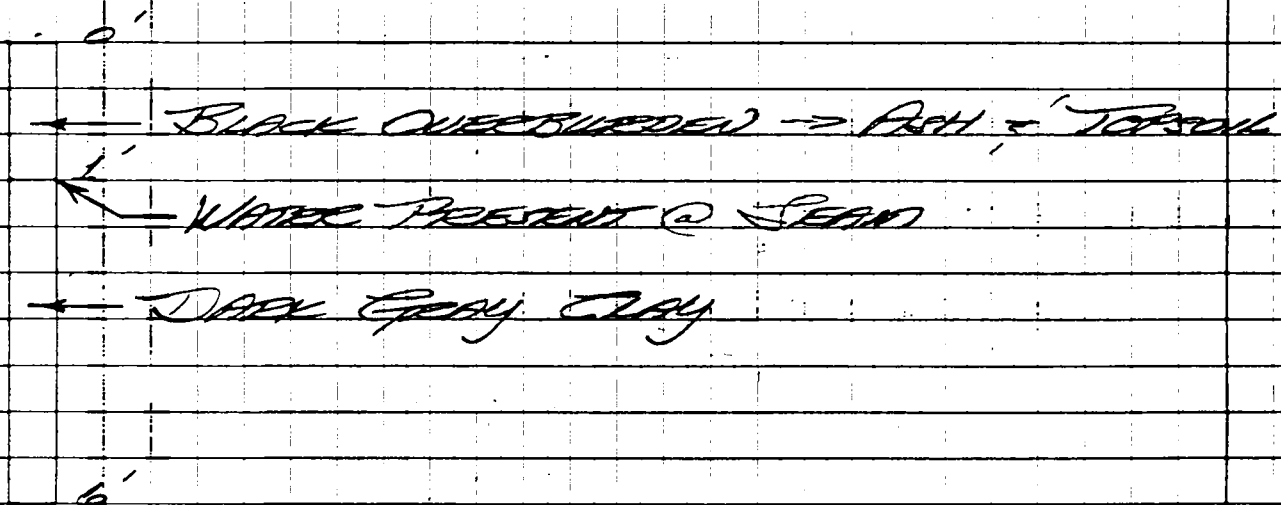 0'
BLACK OVERBURDEN → ASH & TOPSOIL
1'
WATER PRESENT @ SEAM
DARK GRAY CLAY
6'